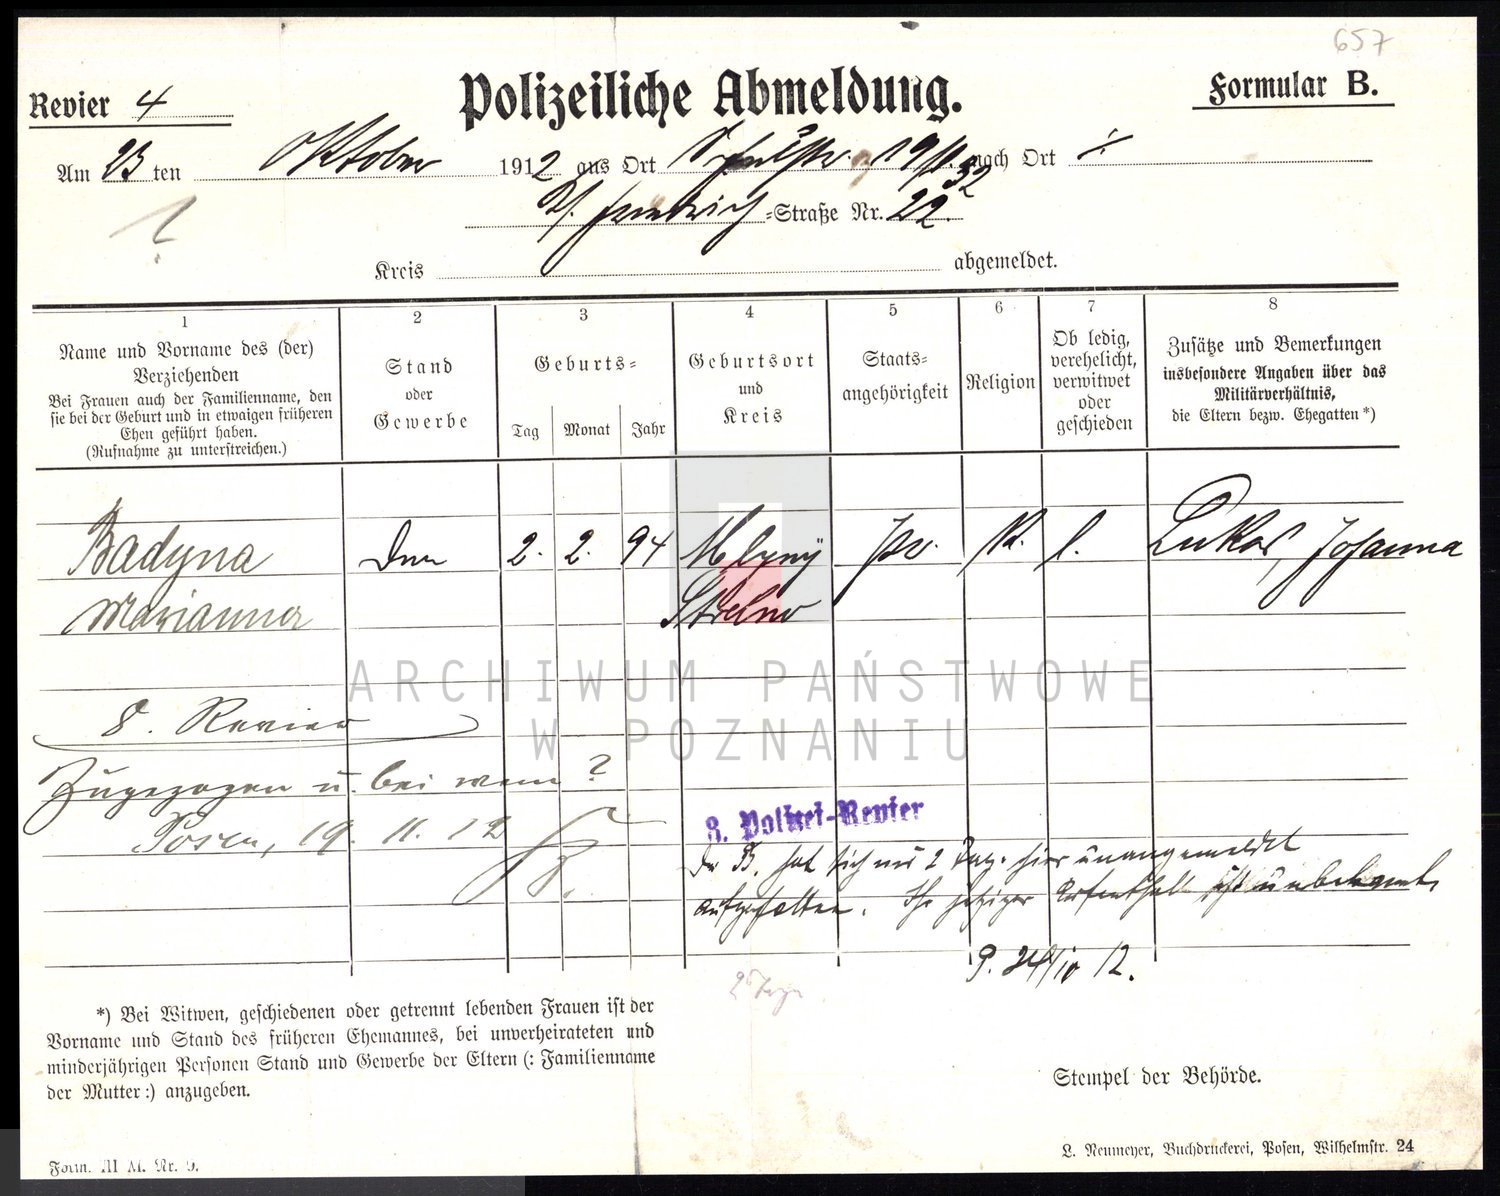 657
Revier 4
Polizeiliche Abmeldung.
Formular B.
Am 23 ten Oktober 1912 aus Ort nach Ort ÷
Friedrich-Straße Nr. 22.
Kreis abgemeldet.
1
Name und Vorname des (der)
Verziehenden
Bei Frauen auch der Familienname, den
sie bei der Geburt und in etwaigen früheren
Ehen geführt haben.
(Rufnahme zu unterstreichen.)
2
Stand
oder
Gewerbe
3
Geburts-
Tag Monat Jahr
4
Geburtsort
und
Kreis
5
Staats-
angehörigkeit
6
Religion
7
Ob ledig,
verehelicht,
verwitwet
oder
geschieden
8
Zusätze und Bemerkungen
insbesondere Angaben über das
Militärverhältnis,
die Eltern bezw. Ehegatten*)
Badyna 2. 2. 94 Mlyny Pr. K. l. Lukas, Johanna
Marianna Strelno
ARCHIWUM PAŃSTWOWE
W POZNANIU
8. Revier
Zugezogen u. bei wem?
Posen, 19. 11. 12
8. Polizei-Revier
Die B. hat sich nur 2 Tage hier unangemeldet
aufgehalten. Ihr jetziger Aufenthalt ist unbekannt.
P. 24/10 12.
2 Tage
*) Bei Witwen, geschiedenen oder getrennt lebenden Frauen ist der
Vorname und Stand des früheren Ehemannes, bei unverheirateten und
minderjährigen Personen Stand und Gewerbe der Eltern (: Familienname
der Mutter:) anzugeben.
Stempel der Behörde.
Form. III M. Nr. 9.
L. Neumeyer, Buchdruckerei, Posen, Wilhelmstr. 24